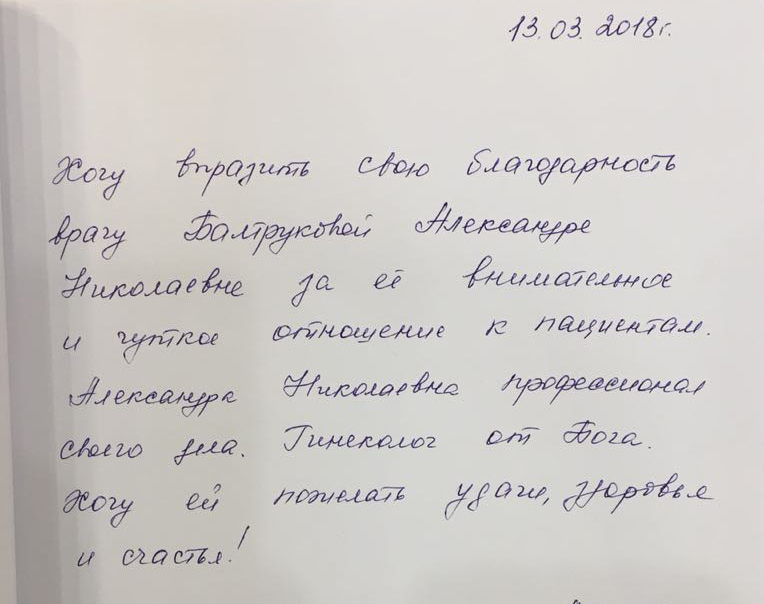 13.03.2018г.
Хочу выразить свою благодарность
врагу Балтруковой Александре
Николаевне за её внимательное
и чуткое отношение к пациентам.
Александра Николаевна профессионал
своего дела. Гинеколог от Бога.
Хочу ей пожелать удачи, здоровья
и счастья!